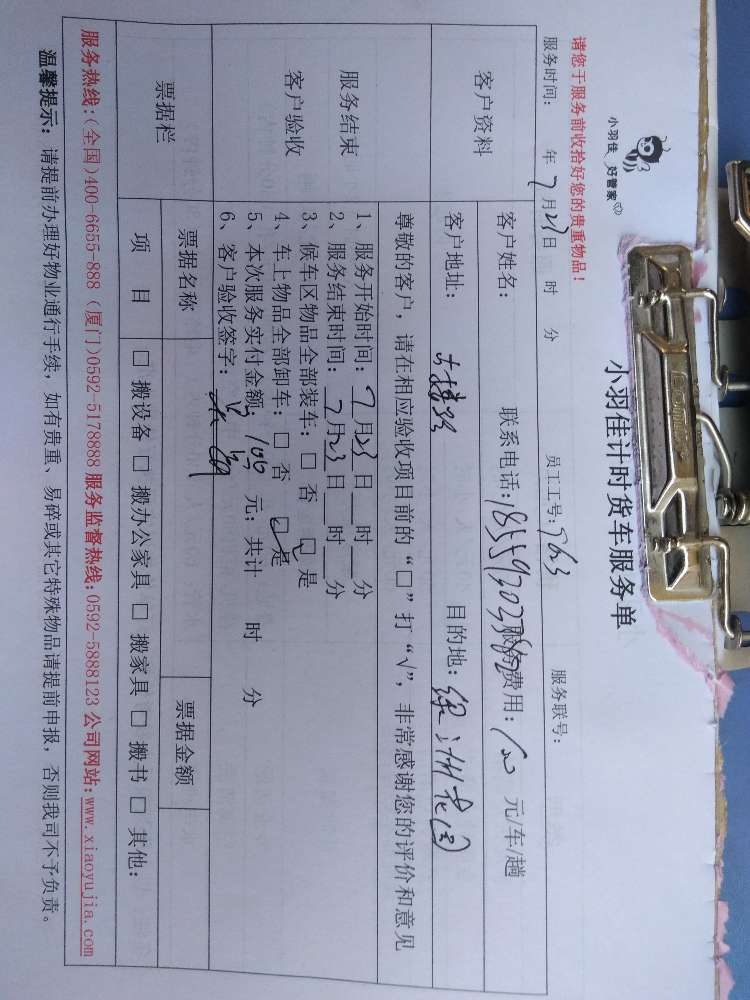 小羽佳 好管家
小羽佳计时货车服务单
请您于服务前收拾好您的贵重物品！
服务时间： 年 7月23日 时 分 员工工号：5763 服务联号：
客户资料
客户姓名： 联系电话： 服务费用： 元/车/趟
客户地址： 目的地：
尊敬的客户，请在相应验收项目前的“□”打“√”，非常感谢您的评价和意见
服务结束
客户验收
1、服务开始时间：7月23日 时 分
2、服务结束时间：7月23日 时 分
3、候车区物品全部装车：□ 否 □ 是
4、车上物品全部卸车：□ 否 □ 是
5、本次服务实付金额：100 元；共计 时 分
6、客户验收签字：
票据栏
票据名称 票据金额
项 目 □ 搬设备 □ 搬办公家具 □ 搬家具 □ 搬书 □ 其他：
服务热线:(全国)400-6655-888 (厦门)0592-5178888 服务监督热线:0592-5888123 公司网站:www.xiaoyujia.com
温馨提示：请提前办理好物业通行手续，如有贵重、易碎或其它特殊物品请提前申报，否则我司不予负责。